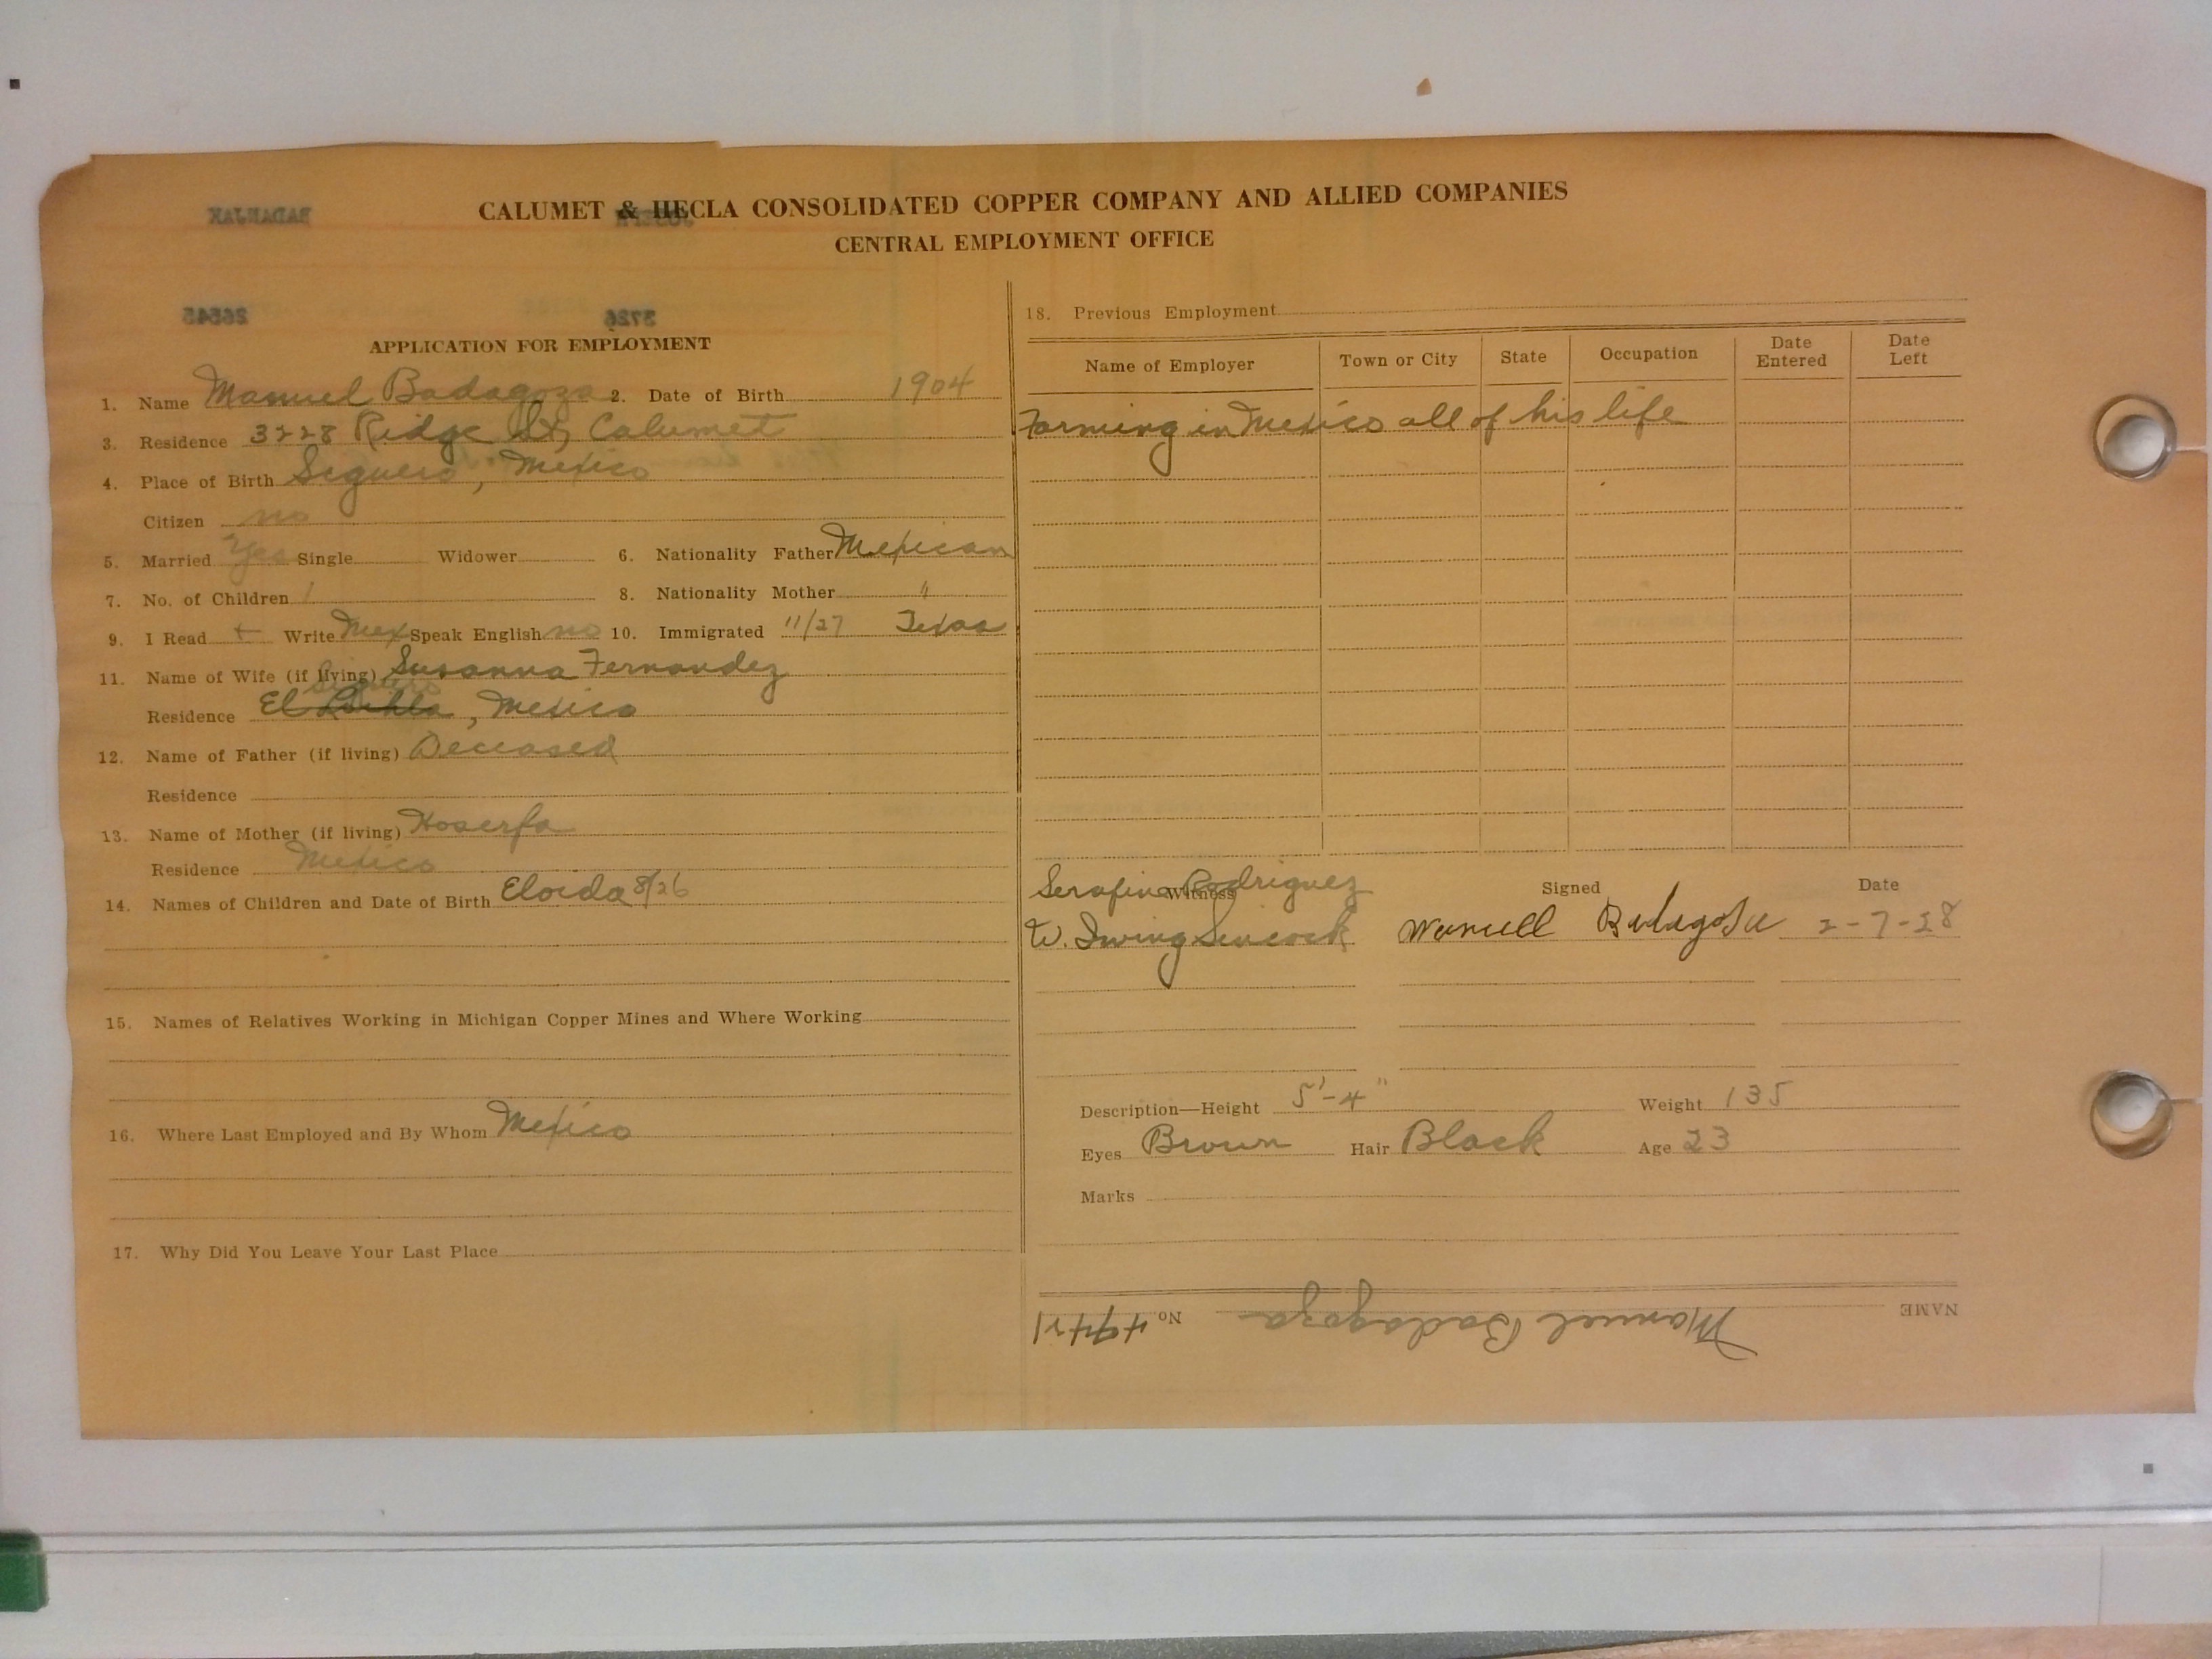 CALUMET & HECLA CONSOLIDATED COPPER COMPANY AND ALLIED COMPANIES
CENTRAL EMPLOYMENT OFFICE
BADANJAK
26545 3726
APPLICATION FOR EMPLOYMENT
1. Name Manuel Badagoza 2. Date of Birth 1904
3. Residence 3228 Ridge St, Calumet
4. Place of Birth Siguero, Mexico
Citizen no
5. Married Yes Single Widower 6. Nationality Father Mexican
7. No. of Children 1 8. Nationality Mother "
9. I Read + Write Mex Speak English no 10. Immigrated 11/27 Texas
11. Name of Wife (if living) Susanna Fernandez
Residence El , Mexico
12. Name of Father (if living) Deceased
Residence
13. Name of Mother (if living) Hoserfa
Residence Mexico
14. Names of Children and Date of Birth Eloida 8/26
15. Names of Relatives Working in Michigan Copper Mines and Where Working
16. Where Last Employed and By Whom Mexico
17. Why Did You Leave Your Last Place
18. Previous Employment
Name of Employer Town or City State Occupation Date Entered Date Left
Farming in Mexico all of his life
Serafino Rodriguez
Witness Signed Date
W. Irving Manuell Badagosa 2-7-28
Description—Height 5'-4" Weight 135
Eyes Brown Hair Black Age 23
Marks
NAME Manuel Badagoza No.